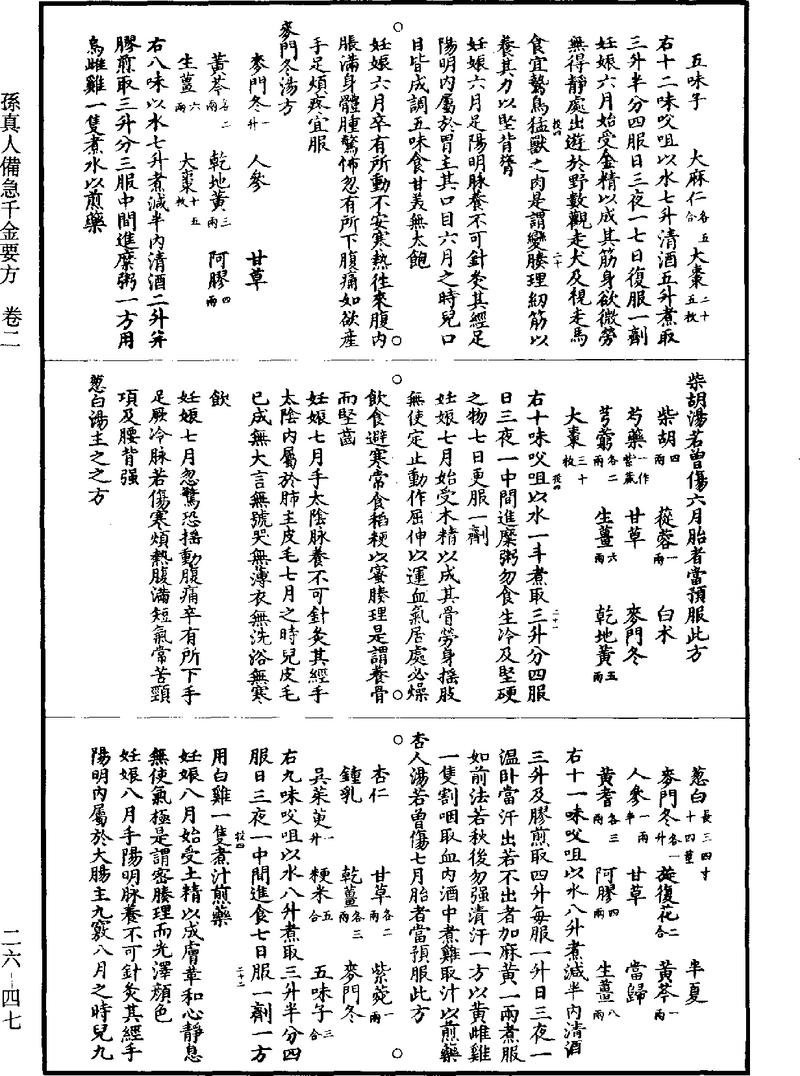 五味子　大麻仁各五合　大棗二十五枚
右十二味㕮咀以水七升清酒五升煮取
三升半分四服日三夜一七日復服一劑
妊娠六月始受金精以成其筋身欲微勞
無得靜處出遊於野數觀走犬及視走馬
食宜鷙鳥猛獸之肉是謂變腠理紉筋以
養其力以堅背膂
妊娠六月足陽明脉養不可針灸其經足
陽明內屬於胃主其口目六月之時兒口
目皆成調五味食甘美無太飽
妊娠六月卒有所動不安寒熱往來腹內
脹滿身體腫驚怖忽有所下腹痛如欲產
手足煩疼宜服
麥門冬湯方
麥門冬一升　人參　甘草
黃芩各二兩　乾地黃三兩　阿膠四兩
生薑六兩　大棗十五枚
右八味以水七升煮減半內清酒二升并
膠煎取三升分三服中間進糜粥一方用
烏雌雞一隻煮水以煎藥
柴胡湯若曾傷六月胎者當預服此方
柴胡四兩　蓯蓉一兩　白朮
芍藥一作紫葳　甘草　麥門冬
芎藭各二兩　生薑六兩　乾地黃五兩
大棗三十枚
右十味㕮咀以水一斗煮取三升分四服
日三夜一中間進糜粥勿食生冷及堅硬
之物七日更服一劑
妊娠七月始受木精以成其骨勞身搖肢
無使定止動作屈伸以運血氣居處必燥
飲食避寒常食稻粳以密腠理是謂養骨
而堅齒
妊娠七月手太陰脉養不可針灸其經手
太陰內屬於肺主皮毛七月之時兒皮毛
已成無大言無號哭無薄衣無洗浴無寒
飲
妊娠七月忽驚恐搖動腹痛卒有所下手
足厥冷脉若傷寒煩熱腹滿短氣常苦頸
項及腰背强
蔥白湯主之方
蔥白長三四寸十四莖　半夏
麥門冬各一升　旋復花二合　黃芩一兩
人參一兩半　甘草　當歸
黃耆各三兩　阿膠四兩　生薑八兩
右十一味㕮咀以水八升煮減半內清酒
三升及膠煎取四升每服一升日三夜一
溫臥當汗出若不出者加麻黃一兩煮服
如前法若秋後勿强漬汗一方以黃雌雞
一隻割咽取血內酒中煮雞取汁以煎藥
杏人湯若曾傷七月胎者當預服此方
杏仁　甘草各二兩　紫菀一兩
鍾乳　乾薑各三兩　麥門冬
吳茱萸一升　粳米五合　五味子三合
右九味㕮咀以水八升煮取三升半分四
服日三夜一中間進食七日服一劑一方
用白雞一隻煮汁煎藥
妊娠八月始受土精以成膚革和心靜息
無使氣極是謂密腠理而光澤顏色
妊娠八月手陽明脉養不可針灸其經手
陽明內屬於大腸主九竅八月之時兒九
孫真人備急千金要方　卷二
二六－四七